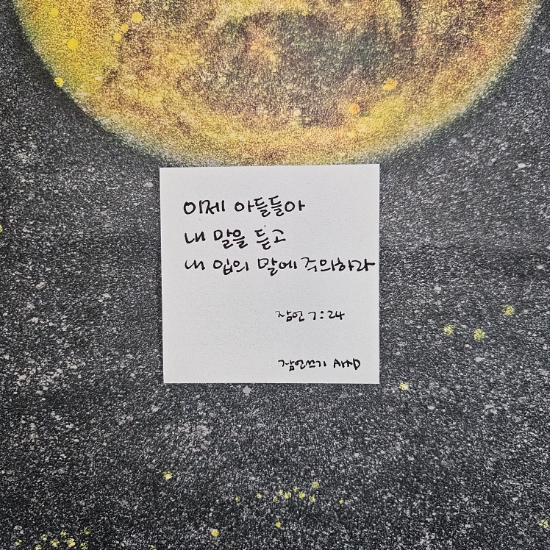 이제 아들들아
내 말을 듣고
내 입의 말에 주의하라
잠언 7:24
잠언쓰기